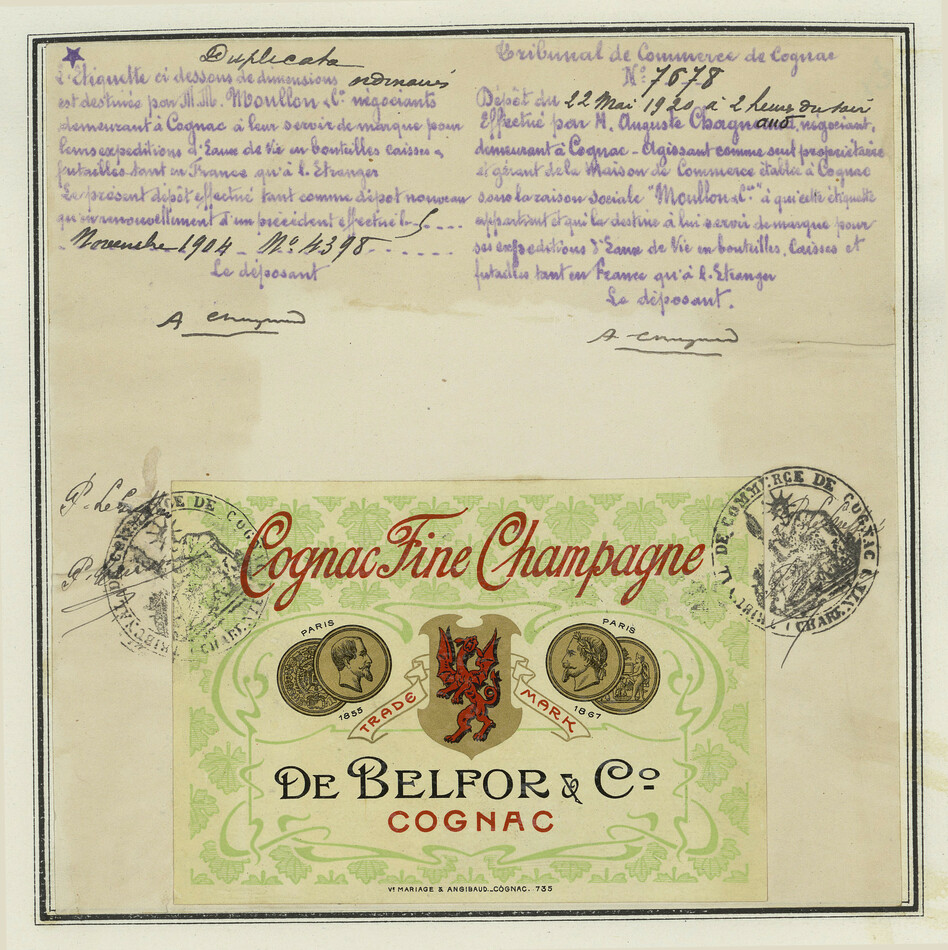 Duplicata
L'Etiquette ci dessous de dimensions ordinaires
est destinée par M.M. Moullon & Cie négociants
demeurant à Cognac à leur servir de marque pour
leurs expéditions d'Eaux de Vie en bouteilles caisses &
futailles tant en France qu'à l'Etranger
Le présent dépôt effectué tant comme dépôt nouveau
qu'en renouvellement d'un précédent effectué le 5
Novembre 1904 - No. 4398
Le déposant
A Chagnaud
Tribunal de Commerce de Cognac
No. 7678
Dépôt du 22 Mai 1920 à 2 heures du soir
Effectué par M. Auguste Chagnaud, négociant,
demeurant à Cognac - Agissant comme seul propriétaire
et gérant de la Maison de Commerce établie à Cognac
sous la raison sociale "Moullon & Cie" à qui cette étiquette
appartient et qui la destine à lui servir de marque pour
ses expéditions d'Eaux de Vie en bouteilles, Caisses et
futailles tant en France qu'à l'Etranger
Le déposant.
A Chagnaud
TRIBUNAL DE COMMERCE DE COGNAC
CHARENTE
TRIBUNAL DE COMMERCE DE COGNAC
CHARENTE
Cognac Fine Champagne
PARIS
1855
PARIS
1867
TRADE MARK
DE BELFOR & Co
COGNAC
Vve MARIAGE & ANGIBAUD_COGNAC. 735